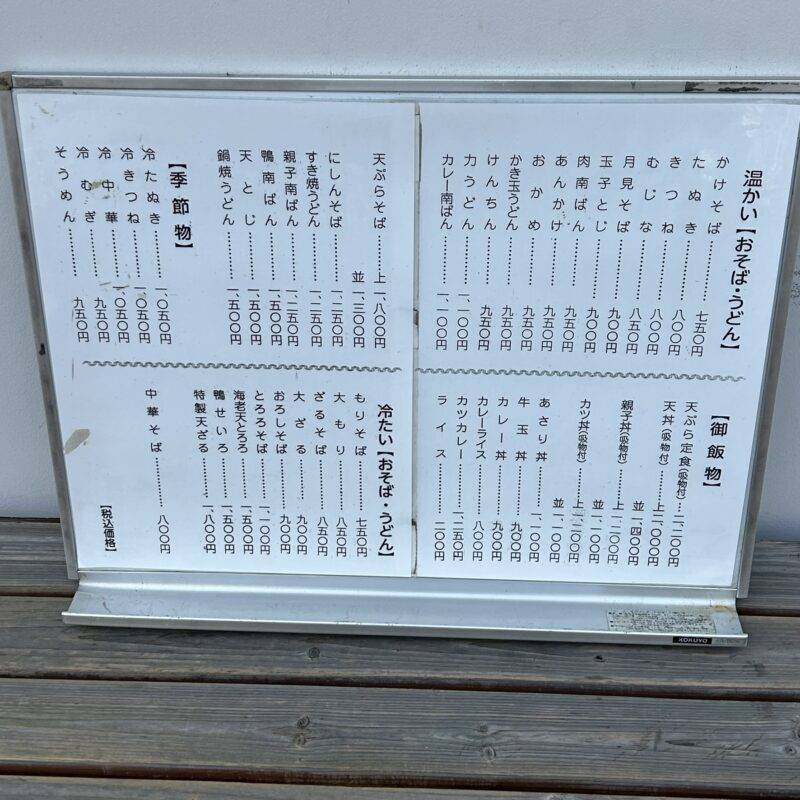 温かい【おそば・うどん】
かけそば………七五〇円
たぬき………八〇〇円
きつね………八〇〇円
むじな………八五〇円
月見そば………九〇〇円
玉子とじ………九〇〇円
肉南ばん………九五〇円
あんかけ………九五〇円
おかめ………九五〇円
かき玉うどん………九五〇円
けんちん………九五〇円
力うどん………一、一〇〇円
カレー南ばん………一、一〇〇円
天ぷらそば………上 一、八〇〇円
並 一、三〇〇円
にしんそば………一、二五〇円
すき焼うどん………一、二五〇円
親子南ばん………一、二五〇円
鴨南ばん………一、五〇〇円
天とじ………一、五〇〇円
鍋焼うどん………一、五〇〇円
【季節物】
冷たぬき………一、〇五〇円
冷きつね………一、〇五〇円
冷中華………一、〇五〇円
冷むぎ………九五〇円
そうめん………九五〇円
【御飯物】
天ぷら定食(吸物付)…一、二〇〇円
天丼(吸物付)………上 二、〇〇〇円
並 一、四〇〇円
親子丼(吸物付)………上 一、二〇〇円
並 一、〇〇〇円
カツ丼(吸物付)………上 一、二〇〇円
並 一、〇〇〇円
あさり丼………一、一〇〇円
牛玉丼………九〇〇円
カレー丼………九〇〇円
カレーライス………八〇〇円
カツカレー………一、二五〇円
ライス………二〇〇円
冷たい【おそば・うどん】
もりそば………七五〇円
大もり………八五〇円
ざるそば………八五〇円
大ざる………九〇〇円
おろしそば………九〇〇円
とろろそば………一、一〇〇円
海老天とろろ………一、五〇〇円
鴨せいろ………一、五〇〇円
特製天ざる………一、八〇〇円
中華そば………八〇〇円
【税込価格】
KOKUYO